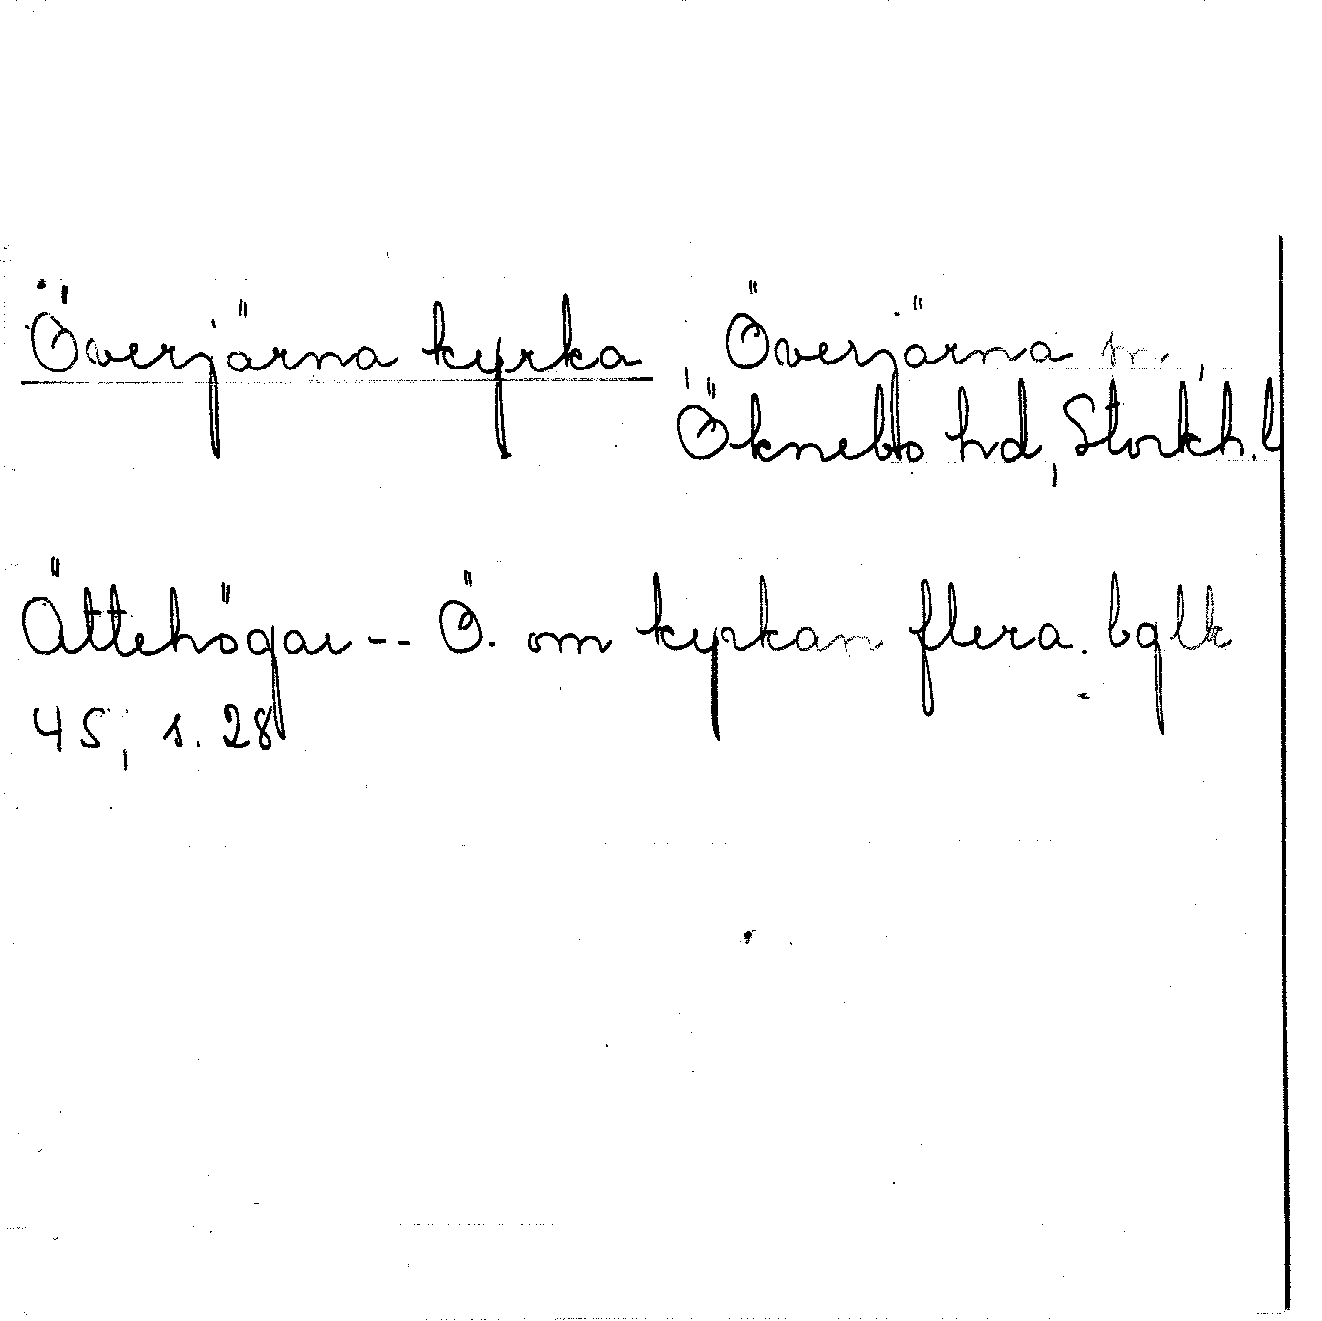 Överjärna kyrka Överjärna sn.
Öknebo hd, Stockh. l
Ättehögar -- Ö. om kyrkan flera. bglk
45, s. 28